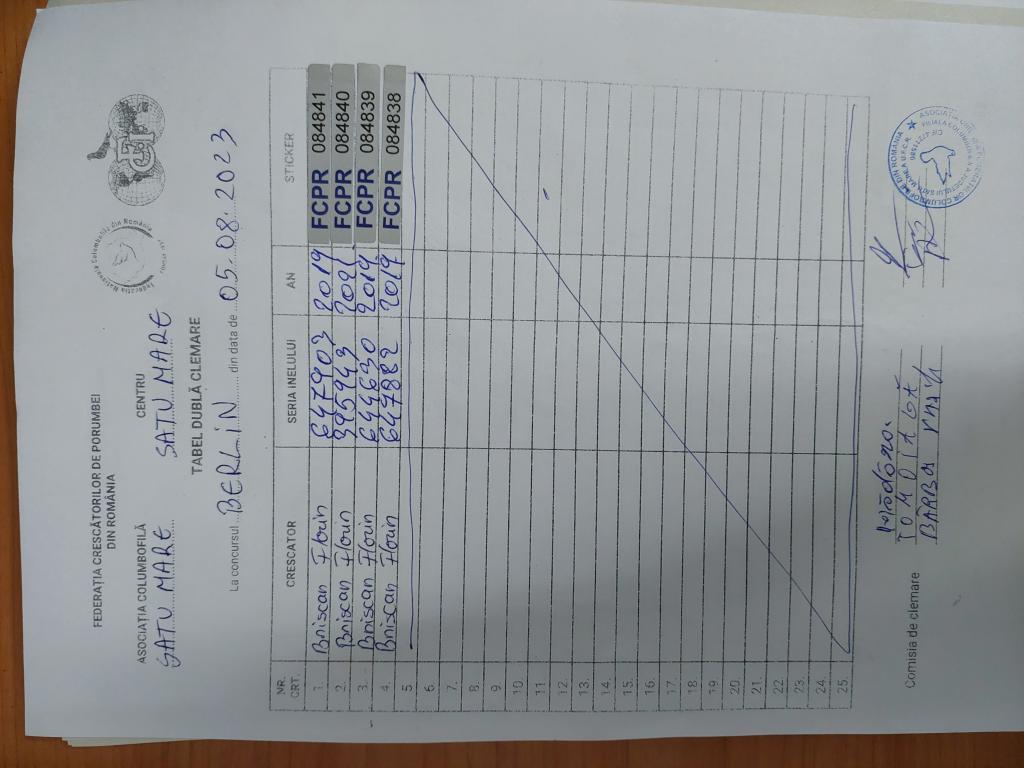 FEDERAȚIA CRESCĂTORILOR DE PORUMBEI
DIN ROMÂNIA
ASOCIAȚIA COLUMBOFILĂ CENTRU
SATU MARE SATU MARE
TABEL DUBLĂ CLEMARE
La concursul BERLIN din data de 05.08.2023
NR. CRT. CRESCATOR SERIA INELULUI AN STICKER
1. Briscan Florin 647903 2019 FCPR 084841
2. Briscan Florin 395943 2021 FCPR 084840
3. Briscan Florin 644630 2019 FCPR 084839
4. Briscan Florin 647882 2019 FCPR 084838
5
6.
7.
8.
9.
10.
11
12.
13.
14.
15.
16.
17.
18.
19.
20.
21.
22.
23.
24.
25.
Comisia de clemare